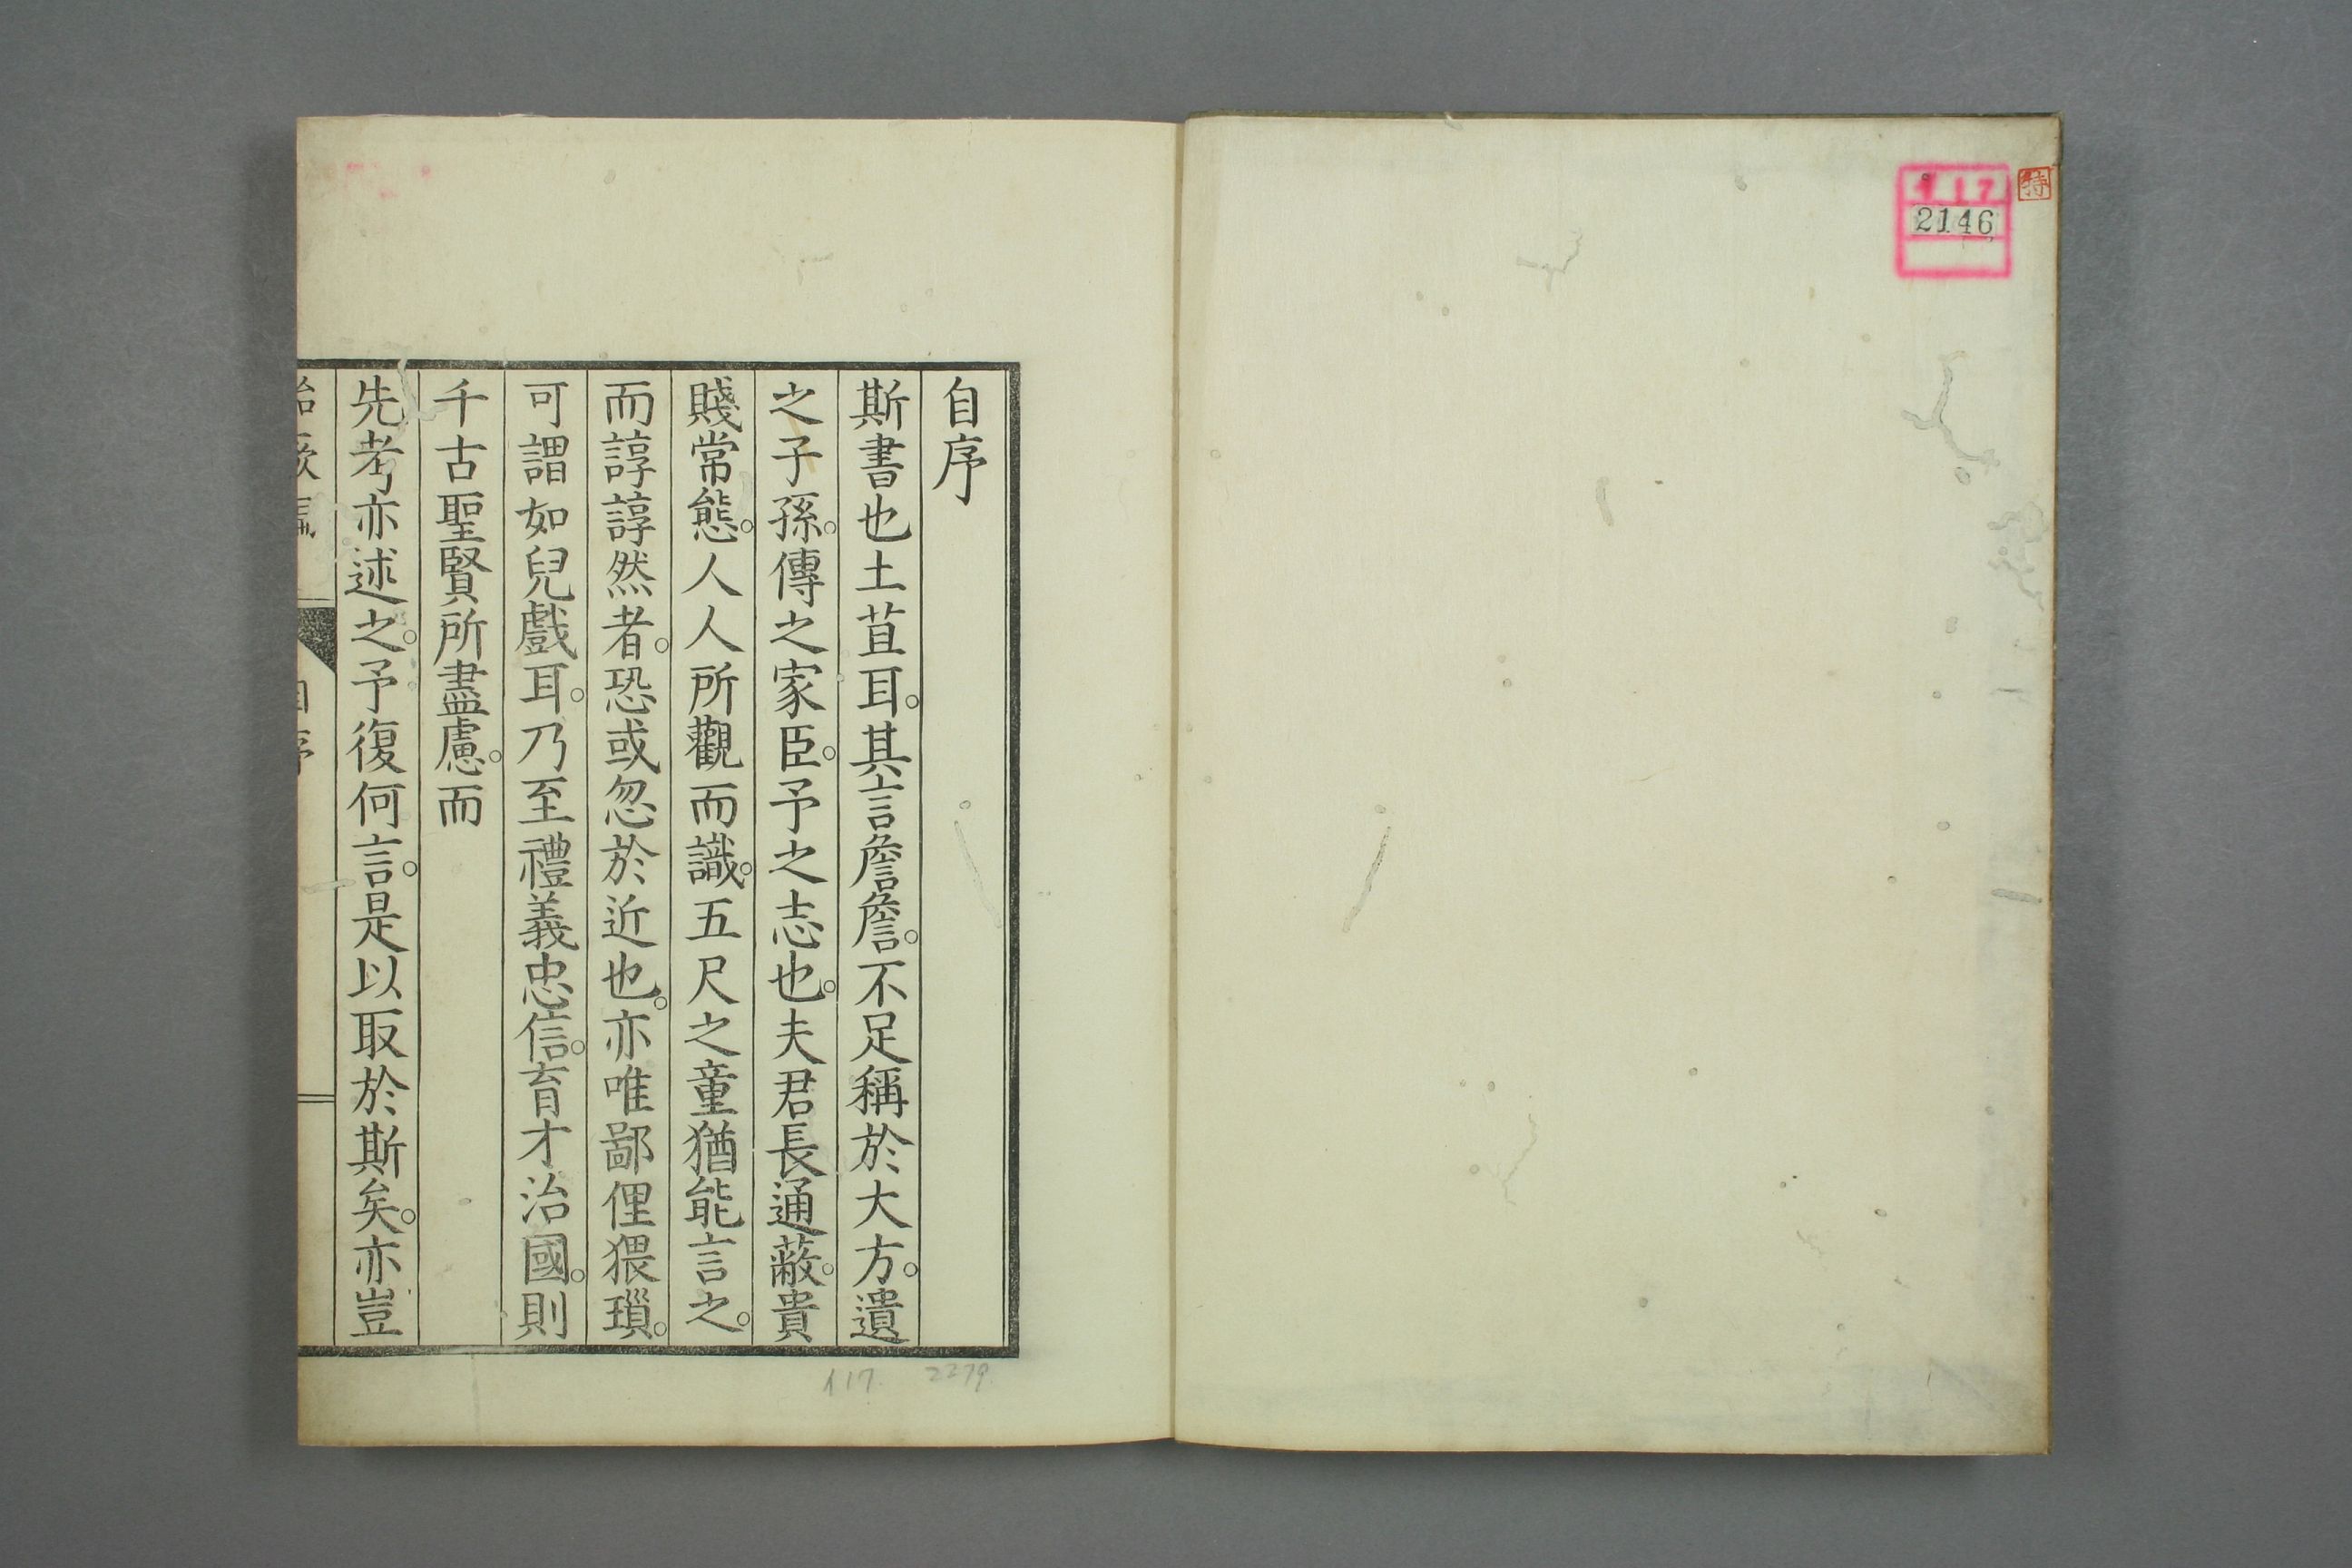 特
117
2146
自序
斯書也土苴耳。其言詹詹。不足稱於大方。遺
之子孫。傳之家臣。予之志也。夫君長通蔽。貴
賤常態。人人所觀而識。五尺之童猶能言之。
而諄諄然者。恐或忽於近也。亦唯鄙俚猥瑣。
可謂如兒戲耳。乃至禮義忠信。育才治國。則
千古聖賢所盡慮。而
先考亦述之。予復何言。是以取於斯矣。亦豈
117 2379